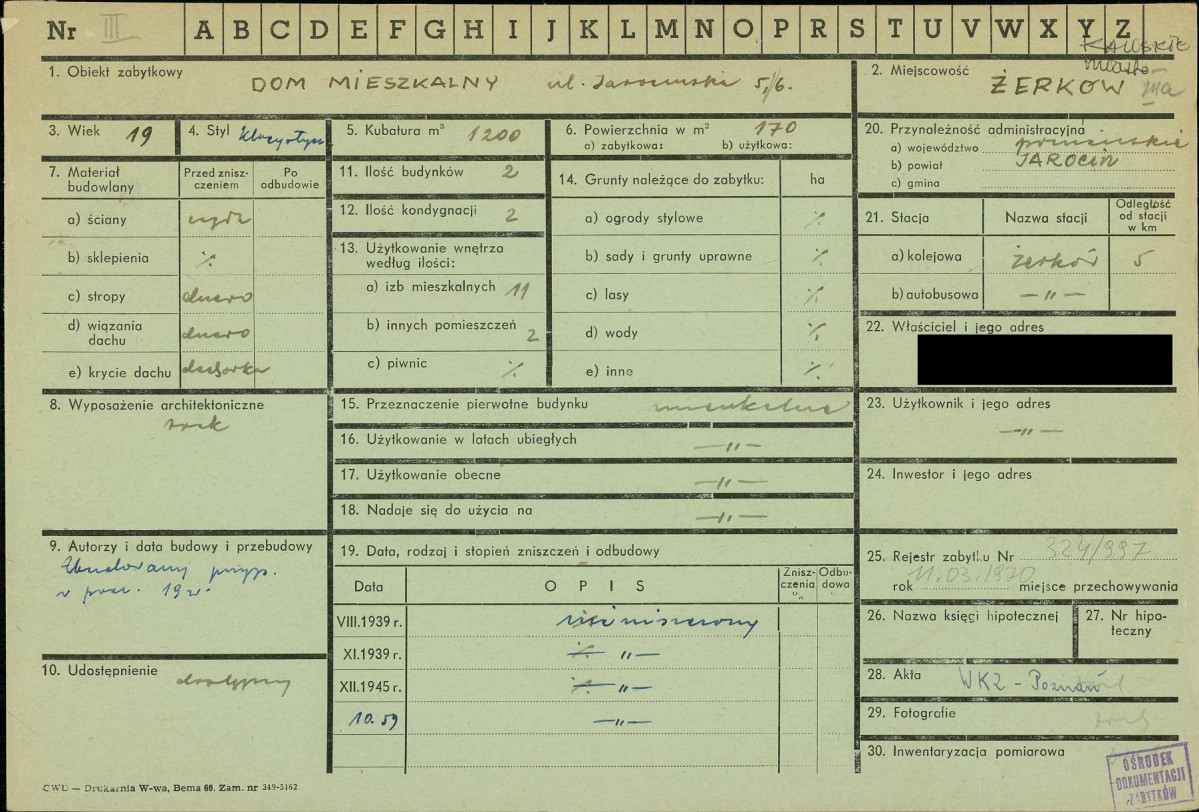 Nr III A B C D E F G H I J K L M N O P R S T U V W X Y Z
KALISKIE
miasto
1. Obiekt zabytkowy DOM MIESZKALNY ul. Jarocińska 5/6.
2. Miejscowość ŻERKÓW IIIa
3. Wiek 19
4. Styl klasycystyczn
5. Kubatura m³ 1200
6. Powierzchnia w m² 170
a) zabytkowa: b) użytkowa:
7. Materiał budowlany
Przed znisz-
czeniem
Po
odbudowie
a) ściany
b) sklepienia ./.
c) stropy drewno
d) wiązania
dachu drewno
e) krycie dachu dachówka
8. Wyposażenie architektoniczne
brak
9. Autorzy i data budowy i przebudowy
Zbudowany przyp.
w pocz. 19 w.
10. Udostępnienie dostępny
11. Ilość budynków 2
12. Ilość kondygnacji 2
13. Użytkowanie wnętrza
według ilości:
a) izb mieszkalnych 11
b) innych pomieszczeń 2
c) piwnic ./.
14. Grunty należące do zabytku: ha
a) ogrody stylowe ./.
b) sady i grunty uprawne ./.
c) lasy ./.
d) wody ./.
e) inne ./.
15. Przeznaczenie pierwotne budynku mieszkalne
16. Użytkowanie w latach ubiegłych — " —
17. Użytkowanie obecne — " —
18. Nadaje się do użycia na — " —
19. Data, rodzaj i stopień zniszczeń i odbudowy
Data OPIS Znisz-
czenia
%
Odbu-
dowa
VIII.1939 r. nie zniszczony
XI.1939 r. ./. — " —
XII.1945 r. ./. — " —
10.59 — " —
20. Przynależność administracyjna
a) województwo poznańskie
b) powiat JAROCIN
c) gmina
21. Stacja Nazwa stacji Odległość
od stacji
w km
a) kolejowa Żerków 5
b) autobusowa — " —
22. Właściciel i jego adres
23. Użytkownik i jego adres
— " —
24. Inwestor i jego adres
25. Rejestr zabytku Nr 324/997
rok 11.03.1970 miejsce przechowywania
26. Nazwa księgi hipotecznej
27. Nr hipo-
teczny
28. Akta WKZ - Poznań
29. Fotografie brak
30. Inwentaryzacja pomiarowa
OŚRODEK
DOKUMENTACJI
ZABYTKÓW
CWD — Drukarnia W-wa, Bema 60. Zam. nr 349-5162